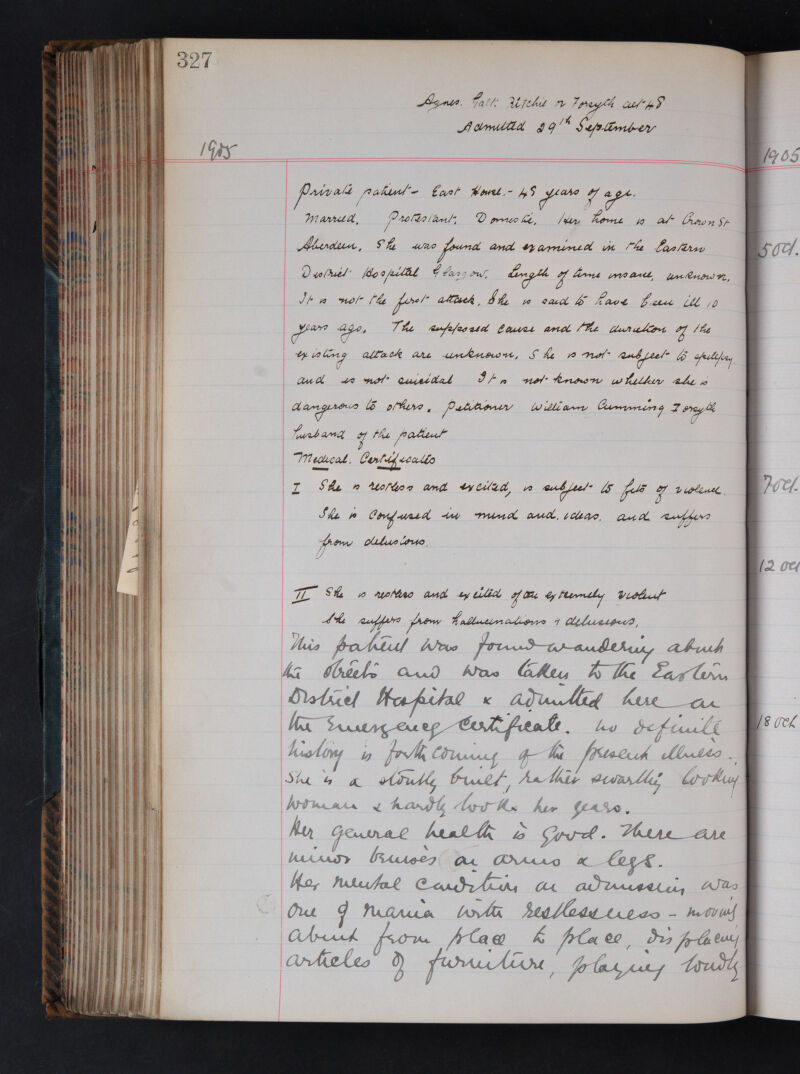 327
Agnes. Galt. Ritchie or Forsyth aet 48
Admitted 29th September
1905
Private patient - East House. - 48 years of age.
Married. Protestant. Domestic. Her home is at Crown St
Aberdeen. She was found and examined in the Eastern
District Hospital Glasgow. Length of time insane, unknown.
It is not the first attack. She is said to have been ill 10
years ago. The supposed cause and the duration of the
existing attack are unknown. She is not subject to epilepsy
and is not suicidal It is not known whether she is
dangerous to others. Petitioner William Cumming Forsyth
husband of the patient
Medical. Certificates
I She is restless and excited, is subject to fits of violence.
She is confused in mind and. ideas. and suffers
from delusions.
II She is restless and excited often extremely violent
She suffers from hallucinations & delusions.
This patient was found wandering about
the streets and was taken to the Eastern
District Hospital & admitted here on
the Emergency Certificate. no definite
history is forthcoming of the present illness.
She is a stoutly built, rather swarthy looking
woman & hardly looks her years.
Her general health is good. There are
minor bruises on arms & legs.
Her mental condition on admission was
one of mania with restlessness - moving
about from place to place, displacing
articles of furniture, playing loudly
1905
5 Oct.
7 Oct.
12 Oct
18 Oct